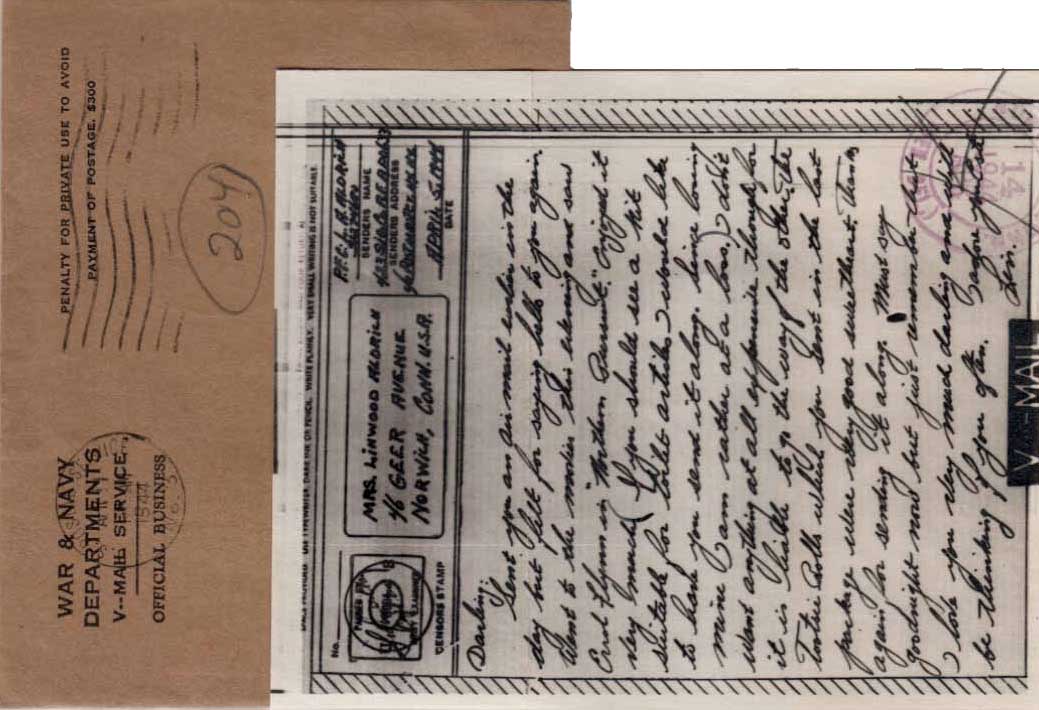 WAR & NAVY
DEPARTMENTS
V--MAIL SERVICE
OFFICIAL BUSINESS
PENALTY FOR PRIVATE USE TO AVOID
PAYMENT OF POSTAGE, $300
204
WRITE PLAINLY. VERY SMALL WRITING IS NOT SUITABLE.
No.
CENSORS STAMP
MRS. LINWOOD ALDRICH
16 GEER AVENUE
NORWICH, CONN. U.S.A.
PFC. L. A. ALDRICH
SENDERS NAME
SENDERS ADDRESS
APRIL 5, 1944
DATE
Darling:
Sent you an air mail earlier in the
day but felt for saying hello to you again.
Went to the movies this evening and saw
Errol Flynn in "Northern Pursuit." enjoyed it
very much. (If you should see a kit
suitable for toilet articles I would like
to have you send it along. Since losing
mine I am rather at a loss.) I don't
want anything at all expensive though for
it is liable to go the way of the other. The
Tootsie Rolls which you sent in the last
package were very good sweetheart. Thanks
again for sending it along. Must say
goodnight now but just remember that
I love you very much darling and will
be thinking of you often.
Lin.
V-MAIL